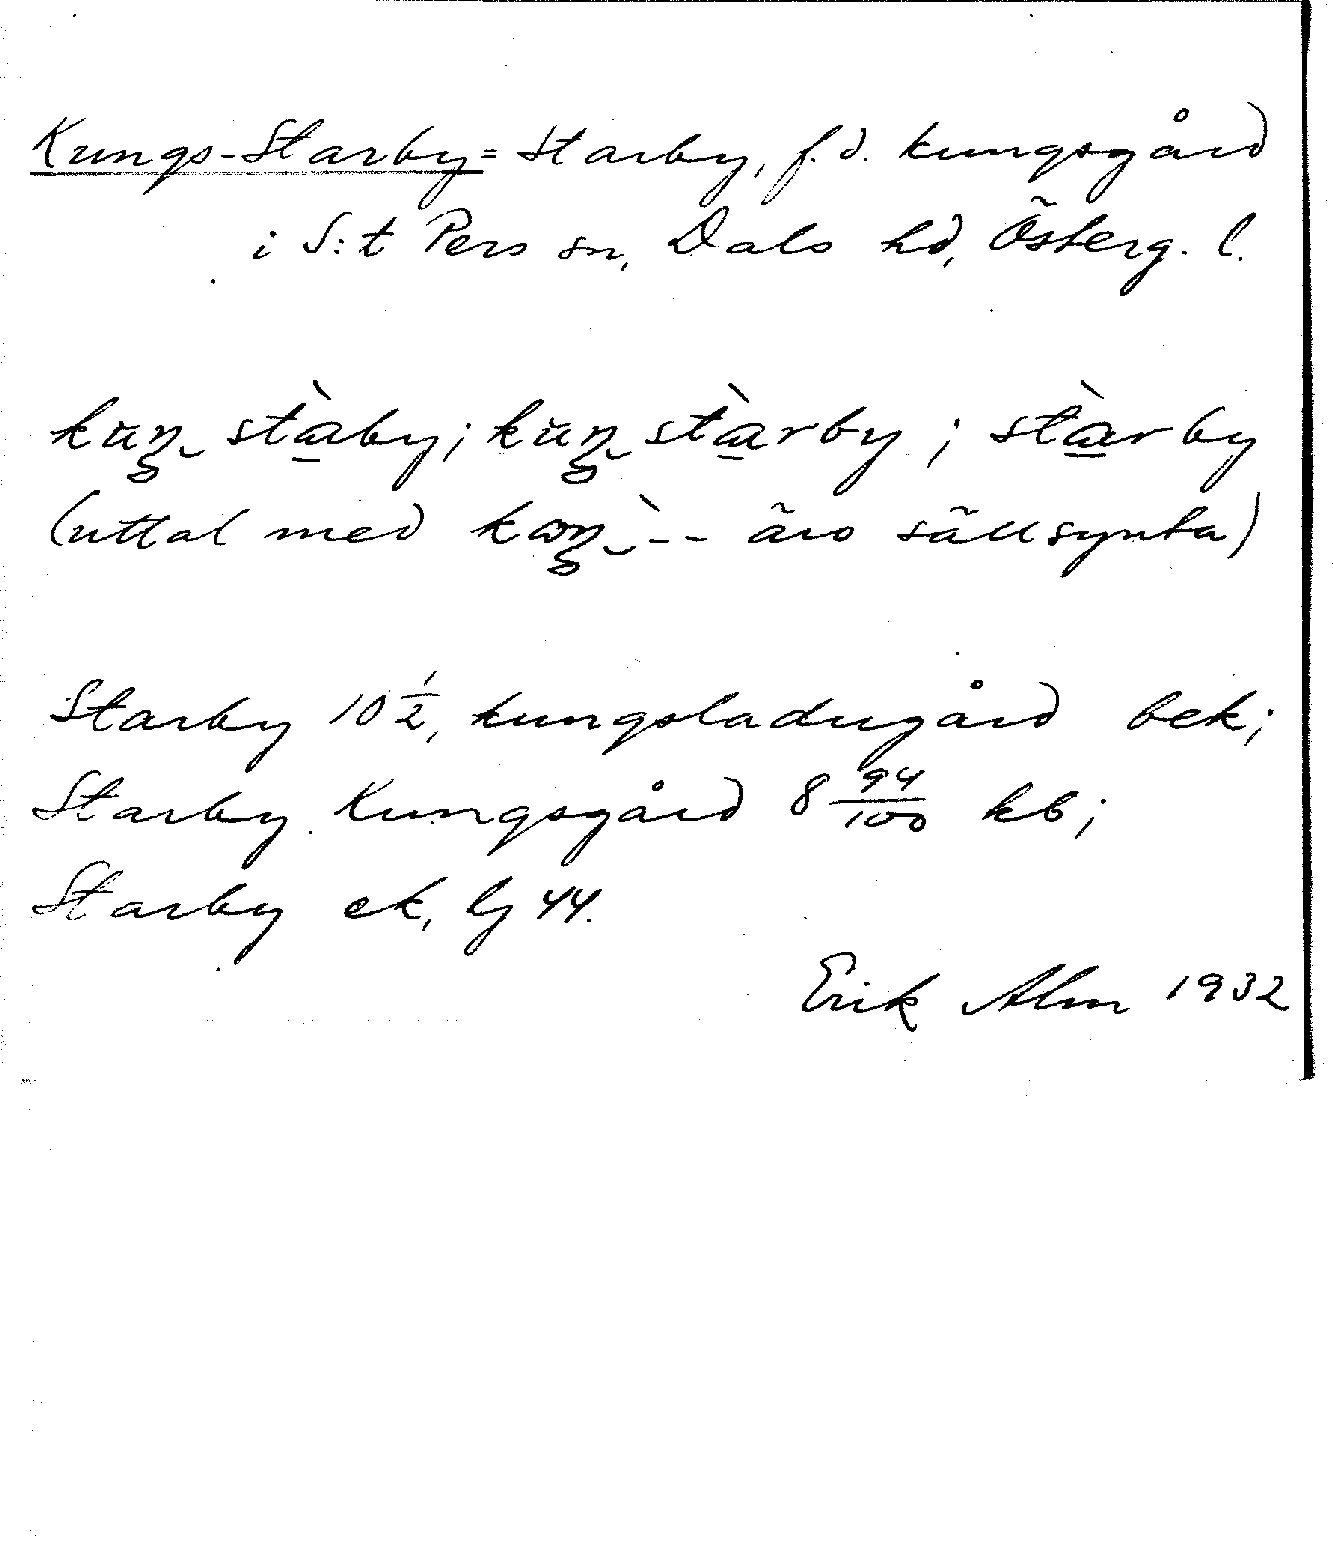 Kungs-Starby = Starby, f.d. kungsgård
i S:t Pers sn, Dals hd, Österg. l.
kuŋ stàby; kuŋ stàrby; stàrby
(uttal med kɷŋ`-- äro sällsynta)
Starby 10 1/2, kungsladugård bek;
Starby Kungsgård 8 94/100 kb;
Starby ek, lj 44.
Erik Alm 1932